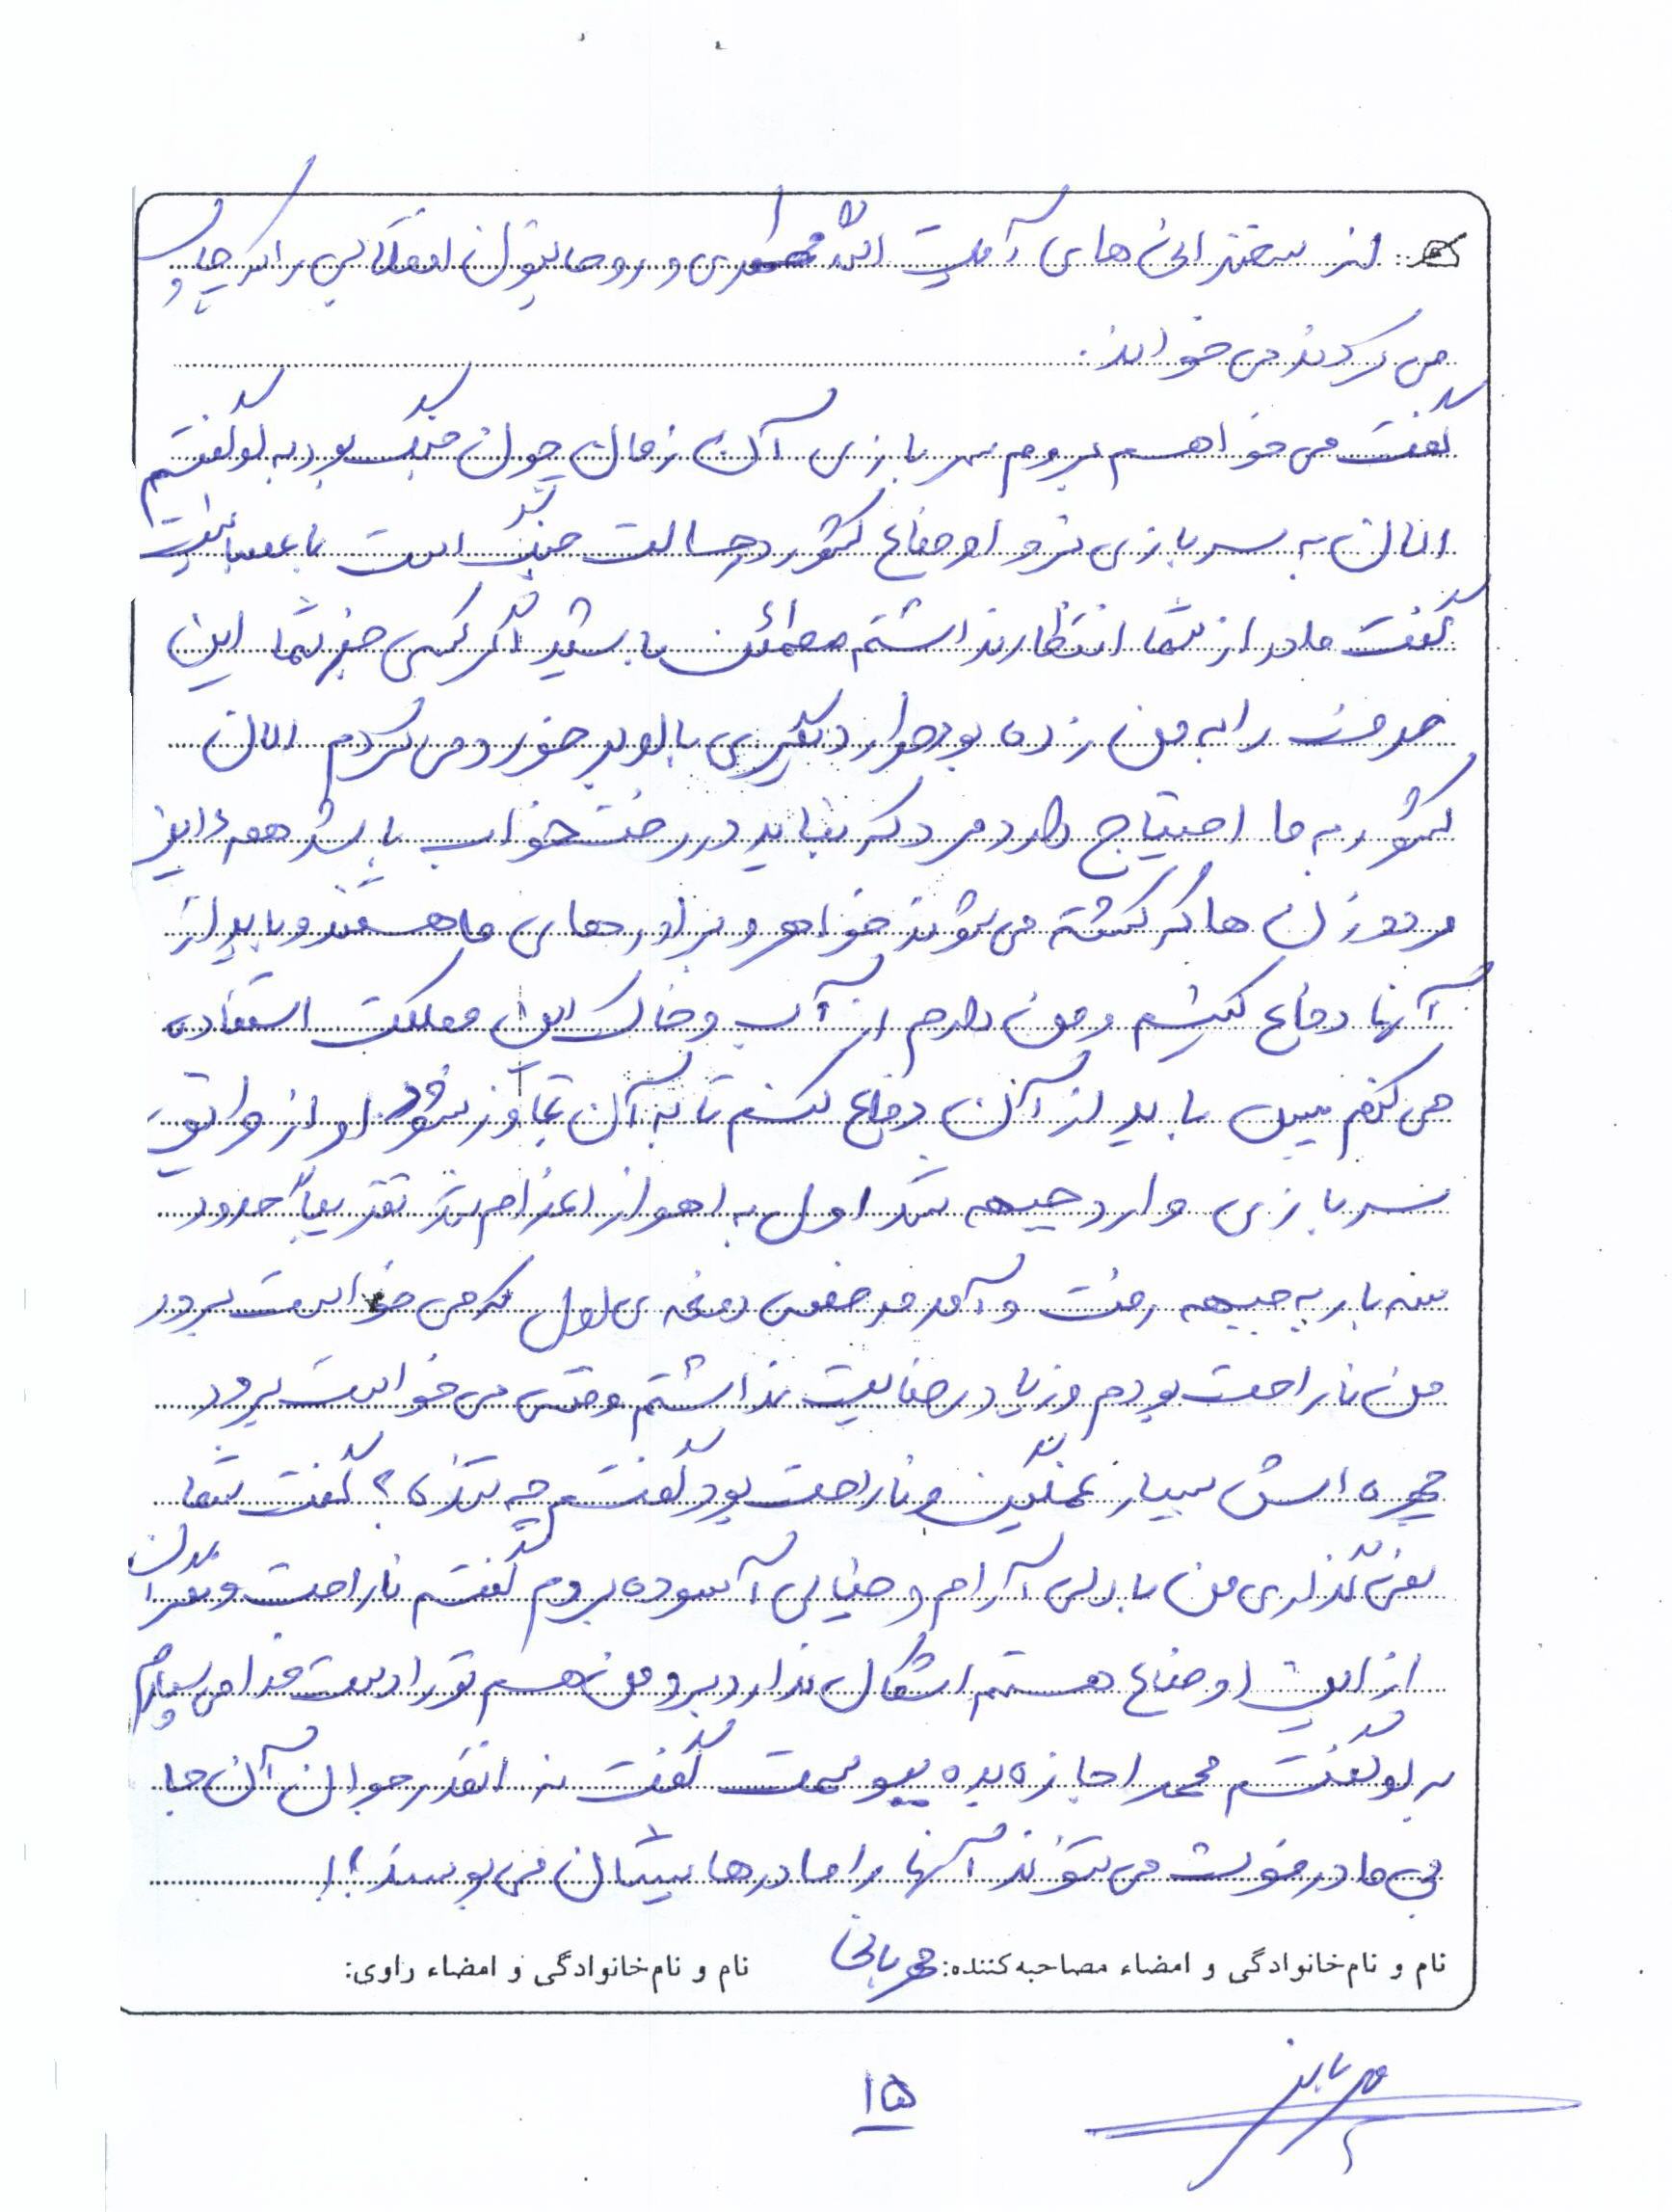 از سخنرانی های آیت الله مطهری و روحانیون انقلابی را که چاپ و
می کردند می خواند.
گفت می خواهم بروم سربازی آن زمان چون جنگ بود به او گفتم
الان به سربازی نرو اوضاع کشور در حالت جنگ است با عصبانیت
گفت مادر از شما انتظار نداشتم مطمئن باشید اگر کسی جز شما این
حرف را به من زده بود طوار دیگری با او برخورد می کردم الان
کشور به ما احتیاج دارد مرد که نباید در رختخواب باشد همه این
مرد و زن ها که کشته می شوند خواهر و برادرهای ما هستند و باید از
آنها دفاع کنیم و من دارم از آب و خاک این مملکت استفاده
می کنم پس باید از آن دفاع کنم تا به آن تجاوز نشود. او از طریق
سربازی وارد جبهه شد اول به اهواز اعزام شد تقریباً حدود
سه بار به جبهه رفت و آمد مرخصی دفعه ی اول که می خواست برود
من ناراحت بودم و زیاد رضایت نداشتم وقتی می خواست برود
چهره اش بسیار غمگین و ناراحت بود گفتم چه شده؟ گفت شما
نمی گذاری من با دلی آرام و خیالی آسوده بروم گفتم ناراحت و نگران
از این اوضاع هستم اشکال ندارد برو من هم تو را دست خدا می سپارم و
به او گفتم محمد اجازه بده ببوسمت گفت نه انقدر جوان آن جا
بی مادر فوت می شوند آنها را مادرهایشان می بوسند؟!
نام و نام‌خانوادگی و امضاء مصاحبه‌کننده: مهربانی
نام و نام‌خانوادگی و امضاء راوی:
۱۵